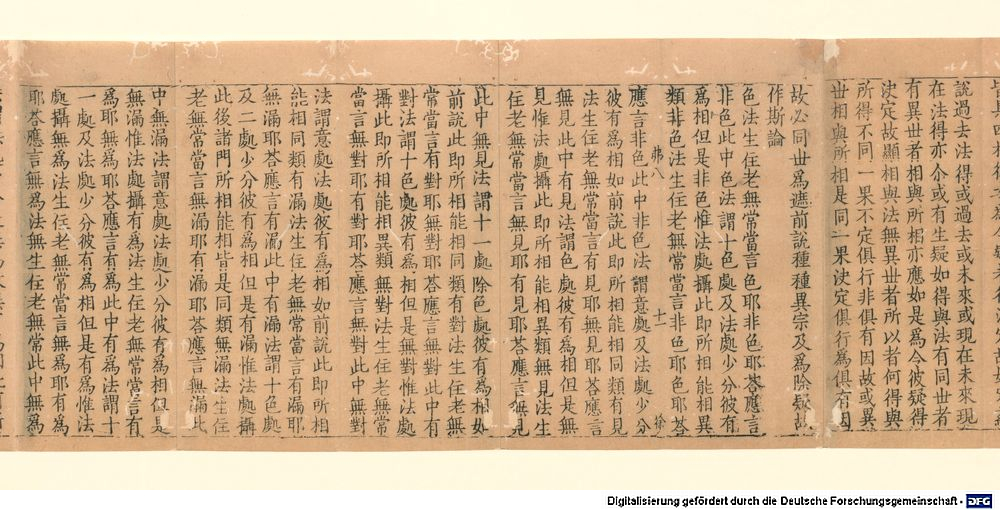 說過去法得或過去或未來或現在未來現
在法得亦尒或有生疑如得與法有同世者
有異世者相與所相亦應如是為令彼疑得
決定故顯相與法無異世者所以者何得與
所得不同一果不定俱行非俱有因故或異
世相與所相是同一果決定俱行為俱有因
故必同世為遮前說種種異宗及為除疑故
作斯論
色法生住老無常當言色耶非色耶荅應言
非色此中色法謂十色處及法處少分彼有
為相但是非色惟法處攝此即所相能相異
類非色法生住老無常當言非色耶色耶荅
弗八 十一 徐
應言非色此中非色法謂意處及法處少分
彼有為相如前說此即所相能相同類有見
法生住老無常當言有見耶無見耶荅應言
無見此中有見法謂色處彼有為相但是無
見惟法處攝此即所相能相異類無見法生
住老無常當言無見耶有見耶荅應言無見
此中無見法謂十一處除色處彼有為相如
前說此即所相能相同類有對法生住老無
常當言有對耶無對耶荅應言無對此中有
對法謂十色處彼有為相但是無對惟法處
攝此即所相能相異類無對法生住老無常
當言無對耶有對耶荅應言無對此中無對
法謂意處法處彼有為相如前說此即所相
能相同類有漏法生住老無常當言有漏耶
無漏耶荅應言有漏此中有漏法謂十色處
及二處少分彼有為相但是有漏惟法處攝
此後諸門所相能相皆是同類無漏法生住
老無常當言無漏耶有漏耶荅應言無漏此
中無漏法謂意處法處少分彼有為相但是
無漏惟法處攝有為法生住老無常當言有
為耶無為耶荅應言有為此中有為法謂十
一處及法處少分彼有為相但是有為惟法
處攝無為法生住老無常當言無為耶有為
耶荅應言無為法無生住老無常此中無為
Digitalisierung gefördert durch die Deutsche Forschungsgemeinschaft - DFG